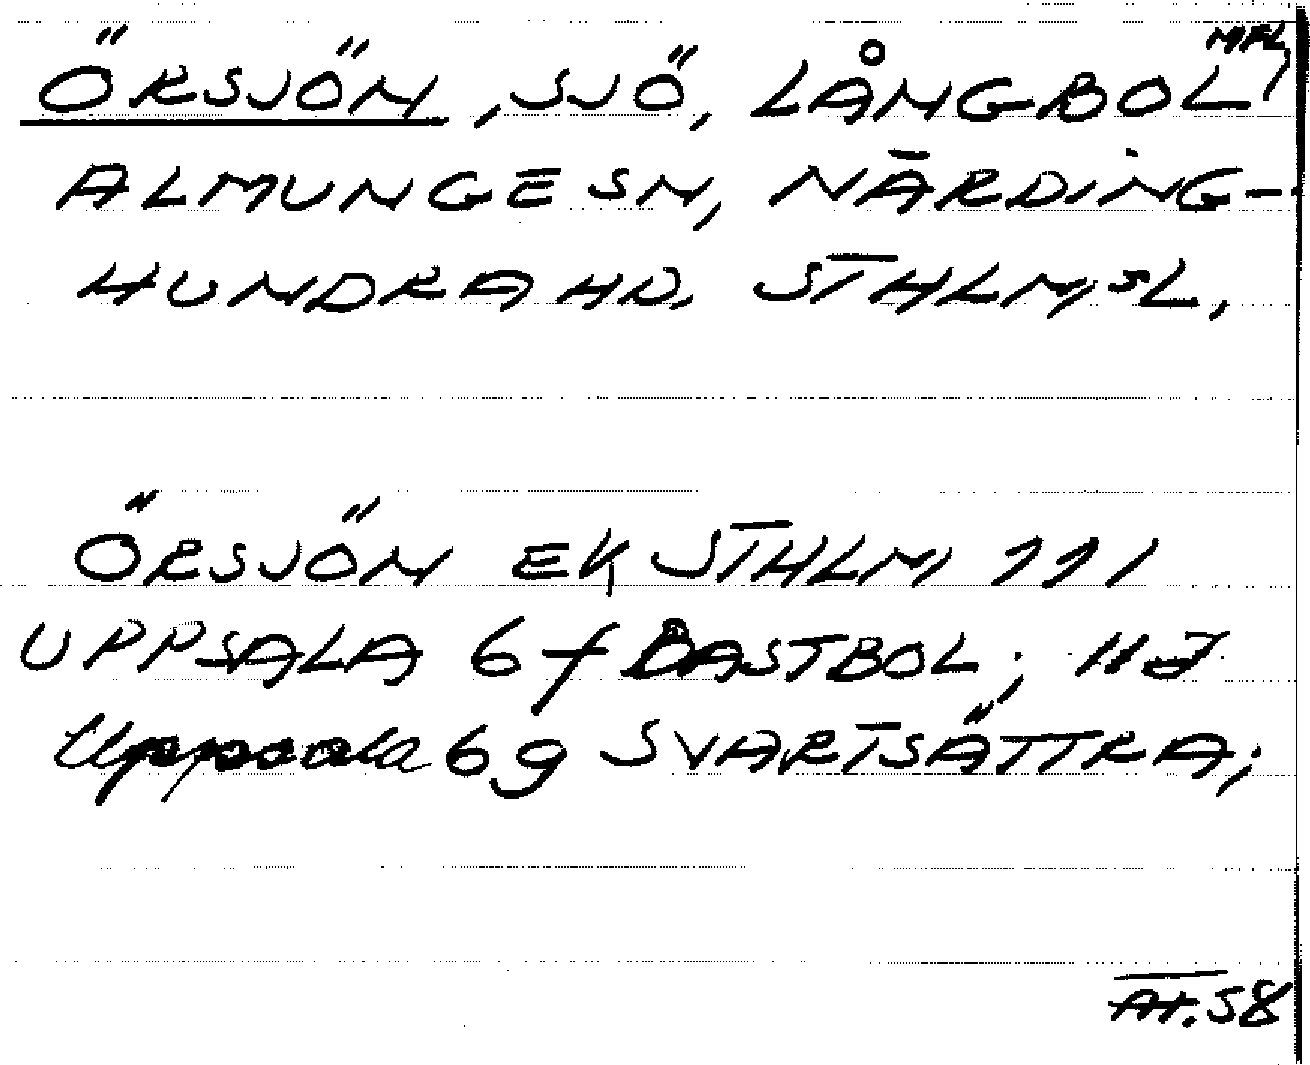 ÖRSJÖN, SJÖ, LÅNGBOL MFL,
ALMUNGE SN, NÄRDING-
HUNDRA HD. STHLMSL.
ÖRSJÖN EK STHLM 111
UPPSALA 6f BASTBOL; 11J
Uppsala 6g SVARTSÄTTRA;
AH. 58